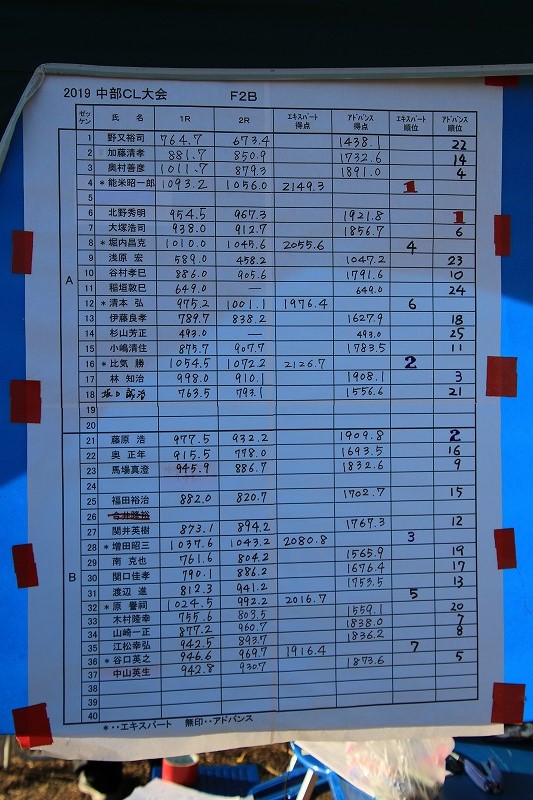 2019 中部CL大会 F2B
ゼッケン 氏 名 1R 2R エキスパート得点 アドバンス得点 エキスパート順位 アドバンス順位
A
1 野又裕司 764.7 673.4 1438.1 22
2 加藤清孝 881.7 850.9 1732.6 14
3 奥村善彦 1011.7 879.3 1891.0 4
4 *能米昭一郎 1093.2 1056.0 2149.3 1
5
6 北野秀明 954.5 967.3 1921.8 1
7 大塚浩司 938.0 912.7 1856.7 6
8 *堀内昌克 1010.0 1045.6 2055.6 4
9 浅原 宏 589.0 458.2 1047.2 23
10 谷村孝巳 886.0 905.6 1791.6 10
11 稲垣敦巳 649.0 — 649.0 24
12 *清本 弘 975.2 1001.1 1976.4 6
13 伊藤良孝 789.7 838.2 1627.9 18
14 杉山芳正 493.0 — 493.0 25
15 小嶋清住 875.7 907.7 1783.5 11
16 *比気 勝 1054.5 1072.2 2126.7 2
17 林 知治 998.0 910.1 1908.1 3
18 763.5 793.1 1556.6 21
19
20
B
21 藤原 浩 977.5 932.2 1909.8 2
22 奥 正年 915.5 778.0 1693.5 16
23 馬場真澄 945.9 886.7 1832.6 9
24
25 福田裕治 882.0 820.7 1702.7 15
26
27 関井英樹 873.1 894.2 1767.3 12
28 *増田昭三 1037.6 1043.2 2080.8 3
29 南 克也 761.6 804.2 1565.9 19
30 関口佳孝 790.1 886.2 1676.4 17
31 渡辺 進 812.3 941.2 1753.5 13
32 *原 誉祠 1024.5 992.2 2016.7 5
33 木村隆幸 755.6 803.5 1559.1 20
34 山崎一正 877.2 960.7 1838.0 7
35 江松幸弘 942.5 893.7 1836.2 8
36 *谷口英之 946.6 969.7 1916.4 7
37 中山英生 942.8 930.7 1873.6 5
38
39
40
*・・エキスパート 無印・・アドバンス